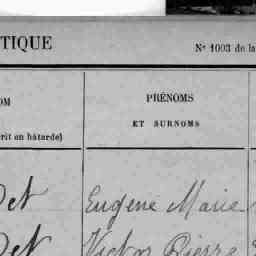 TIQUE
Nº 1003 de la
OM
PRÉNOMS
ET SURNOMS
rit en bâtarde)
Det Eugène Marie
Det Victor Pierre